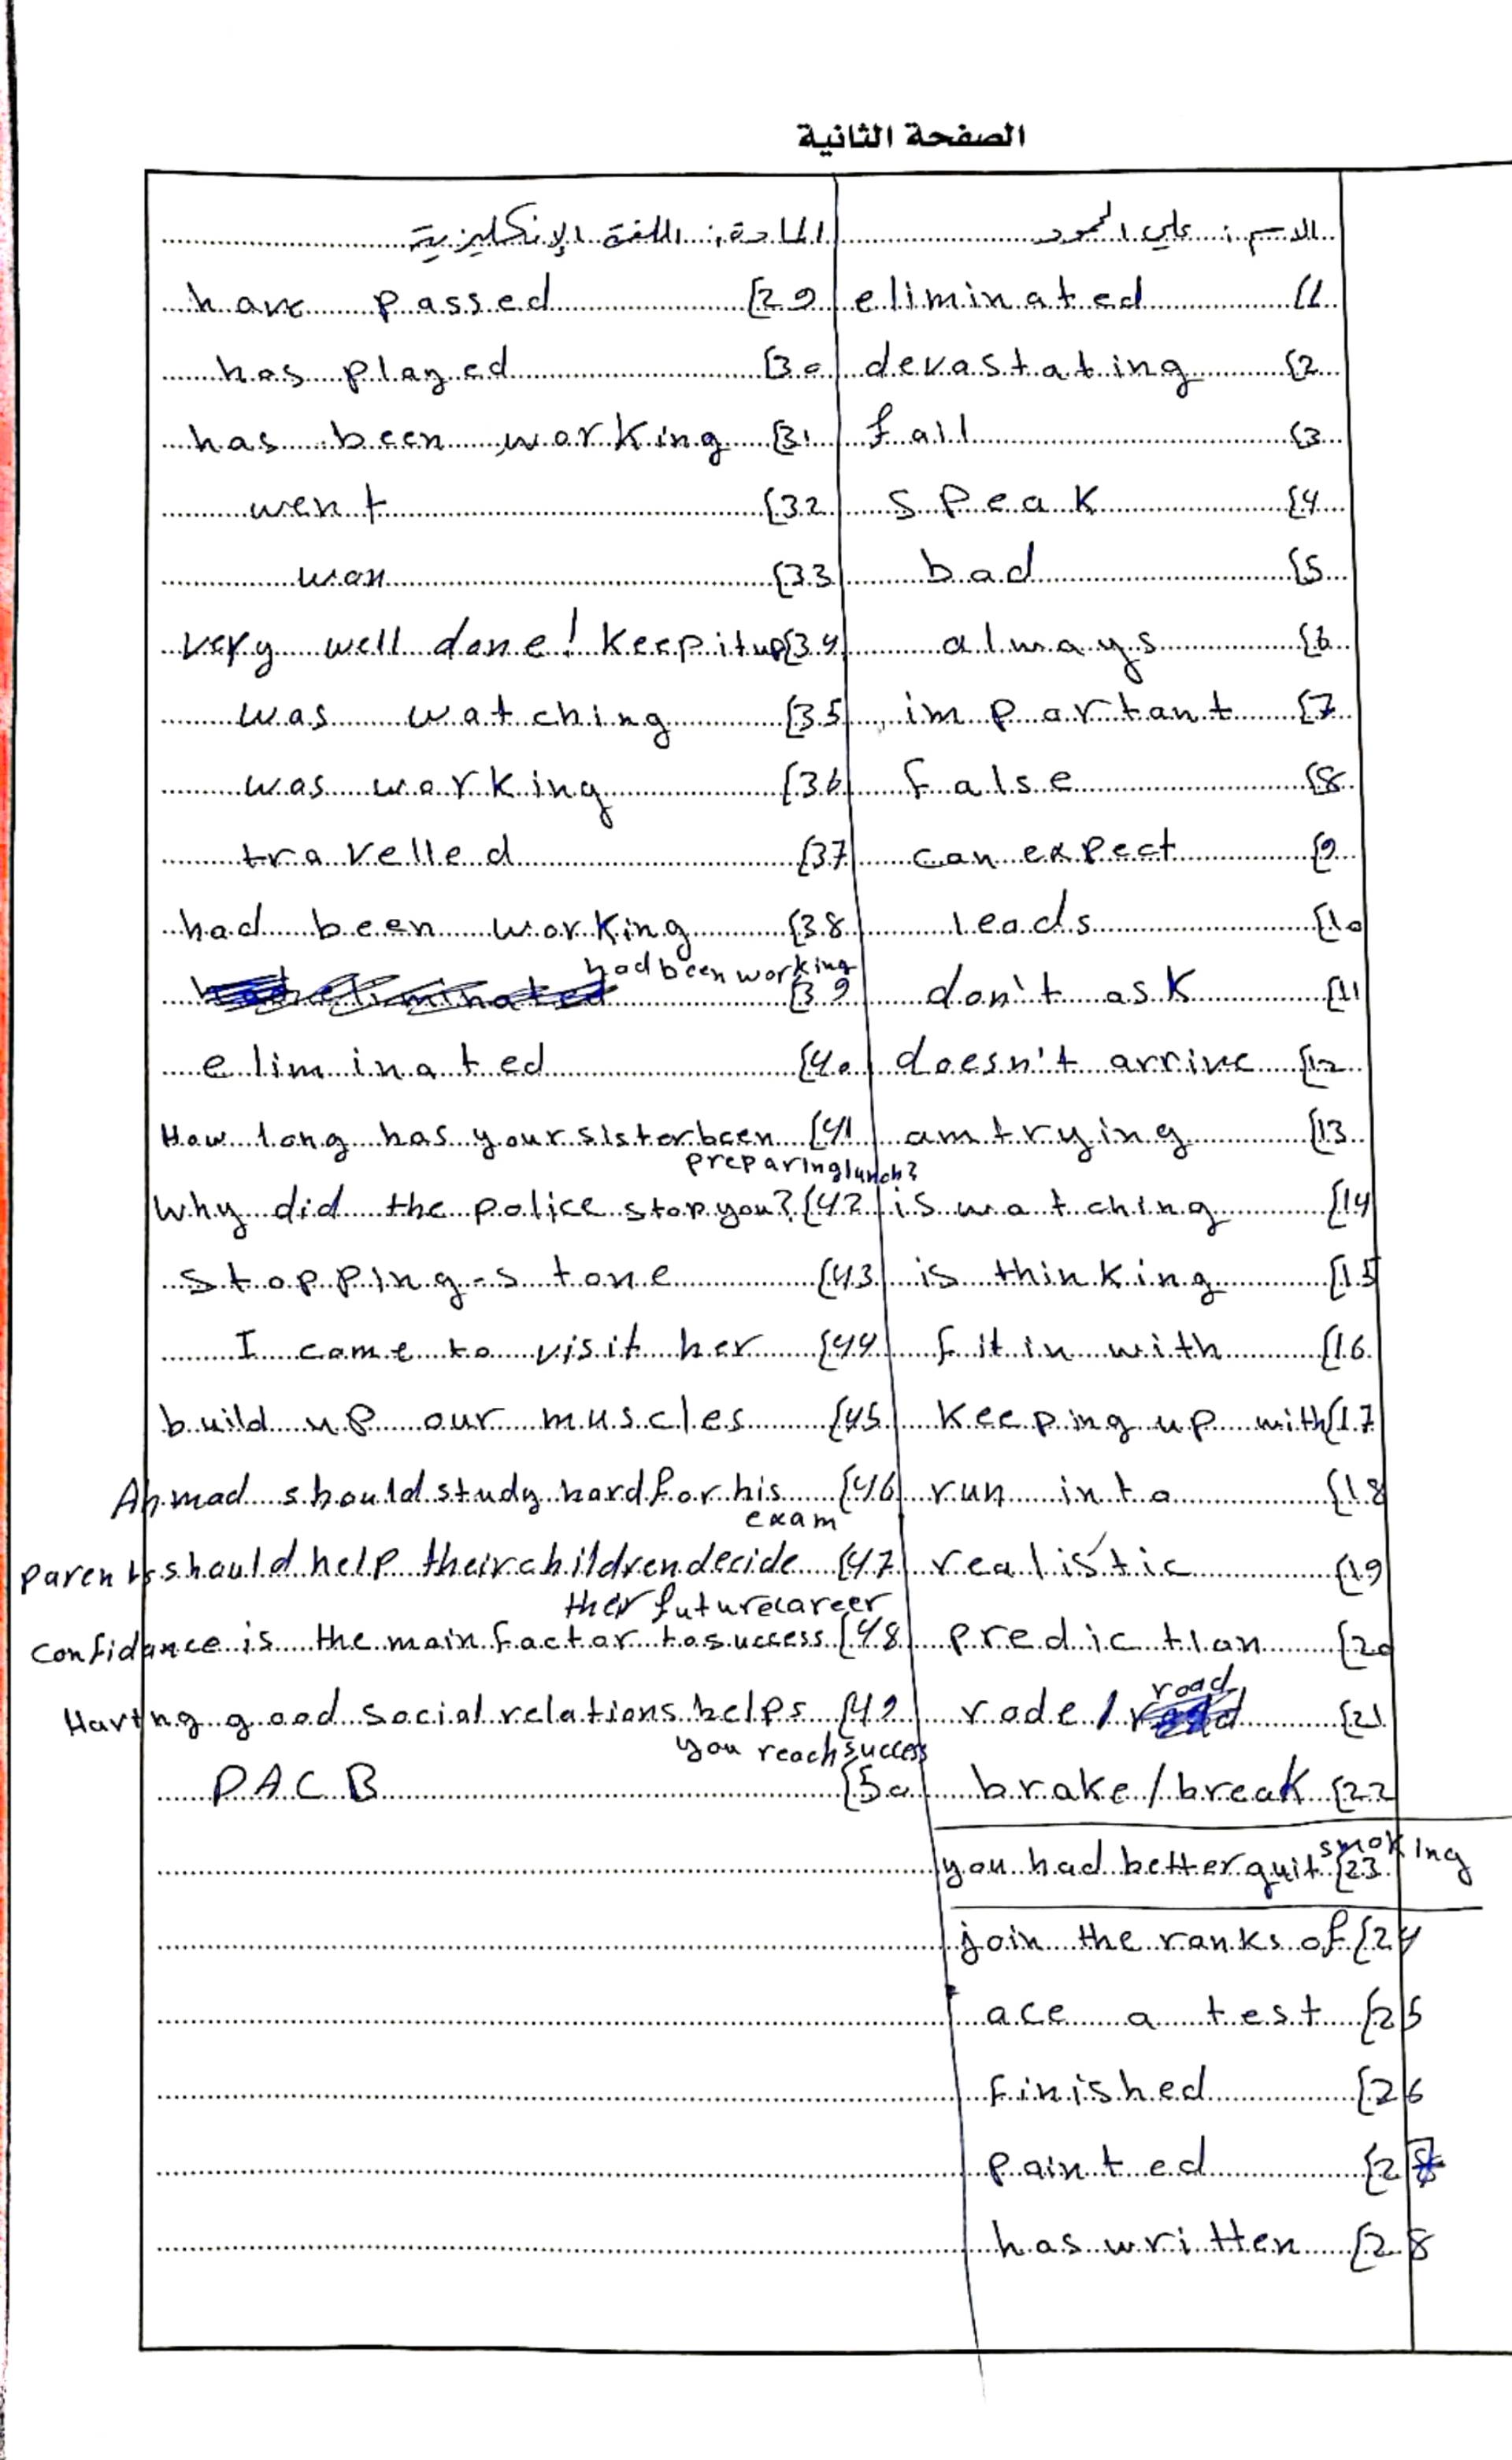 الصفحة الثانية
الاسم: علي المحمود
المادة: اللغة الإنكليزية
1) eliminated
2) devastating
3) fail
4) speak
5) bad
6) always
7) important
8) false
9) can expect
10) leads
11) don't ask
12) doesn't arrive
13) am trying
14) is watching
15) is thinking
16) fit in with
17) keeping up with
18) run into
19) realistic
20) prediction
21) rode / road
22) brake / break
23) you had better quit smoking
24) join the ranks of
25) ace a test
26) finished
27) painted
28) has written
29) have passed
30) has played
31) has been working
32) went
33) won
34) very well done! Keep it up
35) was watching
36) was working
37) travelled
38) had been working
39) had been working
40) eliminated
41) How long has your sister been
preparing lunch?
42) Why did the police stop you?
43) stopping-stone
44) I came to visit her
45) build up our muscles
46) Ahmad should study hard for his
exam
47) Parents should help their children decide
their future career
48) Confidance is the main factor to success
49) Having good social relations helps
you reach success
50) D A C B